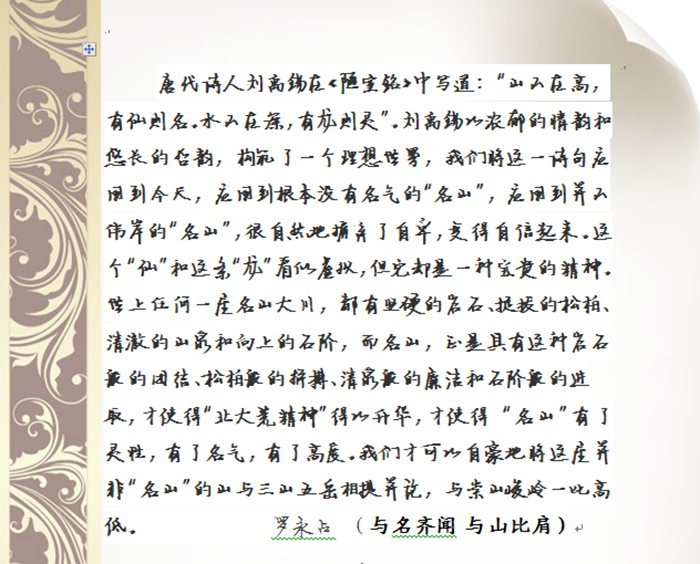 唐代诗人刘禹锡在《陋室铭》中写道：“山不在高，
有仙则名。水不在深，有龙则灵”。刘禹锡以浓郁的情韵和
悠长的哲韵，构筑了一个理想世界，我们将这一诗句应
用到今天，应用到根本没有名气的“名山”，应用到并不
伟岸的“名山”，很自然地摒弃了自卑，变得自信起来。这
个“仙”和这条“龙”看似虚拟，但它却是一种宝贵的精神。
世上任何一座名山大川，都有坚硬的岩石、挺拔的松柏、
清澈的山泉和向上的石阶，而名山，正是具有这种岩石
般的团结、松柏般的拼搏、清泉般的廉洁和石阶般的进
取，才使得“北大荒精神”得以升华，才使得 “名山”有了
灵性，有了名气，有了高度。我们才可以自豪地将这座并
非“名山”的山与三山五岳相提并论，与崇山峻岭一比高
低。 罗永占 （与名齐闻 与山比肩）